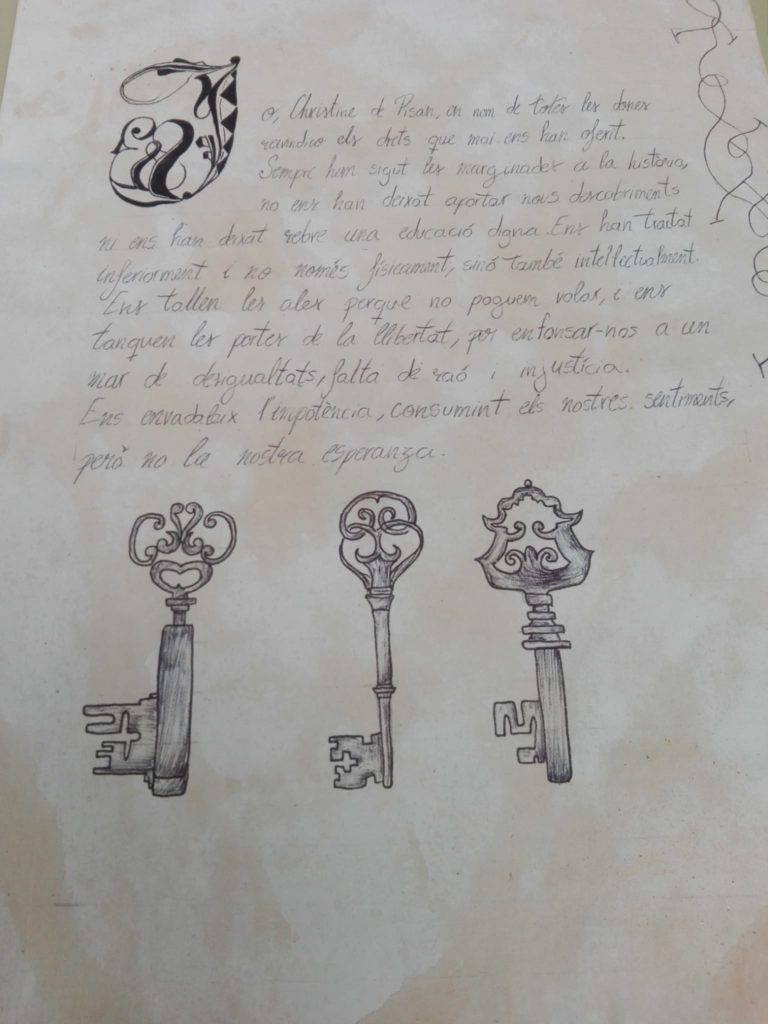 Jo, Christine de Pisan, en nom de totes les dones
reivindico els drets que mai ens han oferit.
Sempre hem sigut les marginades a la història,
no ens han deixat aportar nous descobriments
ni ens han deixat rebre una educació digna. Ens han tractat
inferiorment i no només físicament, sinó també intel·lectualment.
Ens tallen les ales perque no poguem volar, i ens
tanquen les portes de la llibertat, per enfonsar-nos a un
mar de desigualtats, falta de raó i injustícia.
Ens envadeix l'impotència, consumint els nostres sentiments,
però no la nostra esperança.